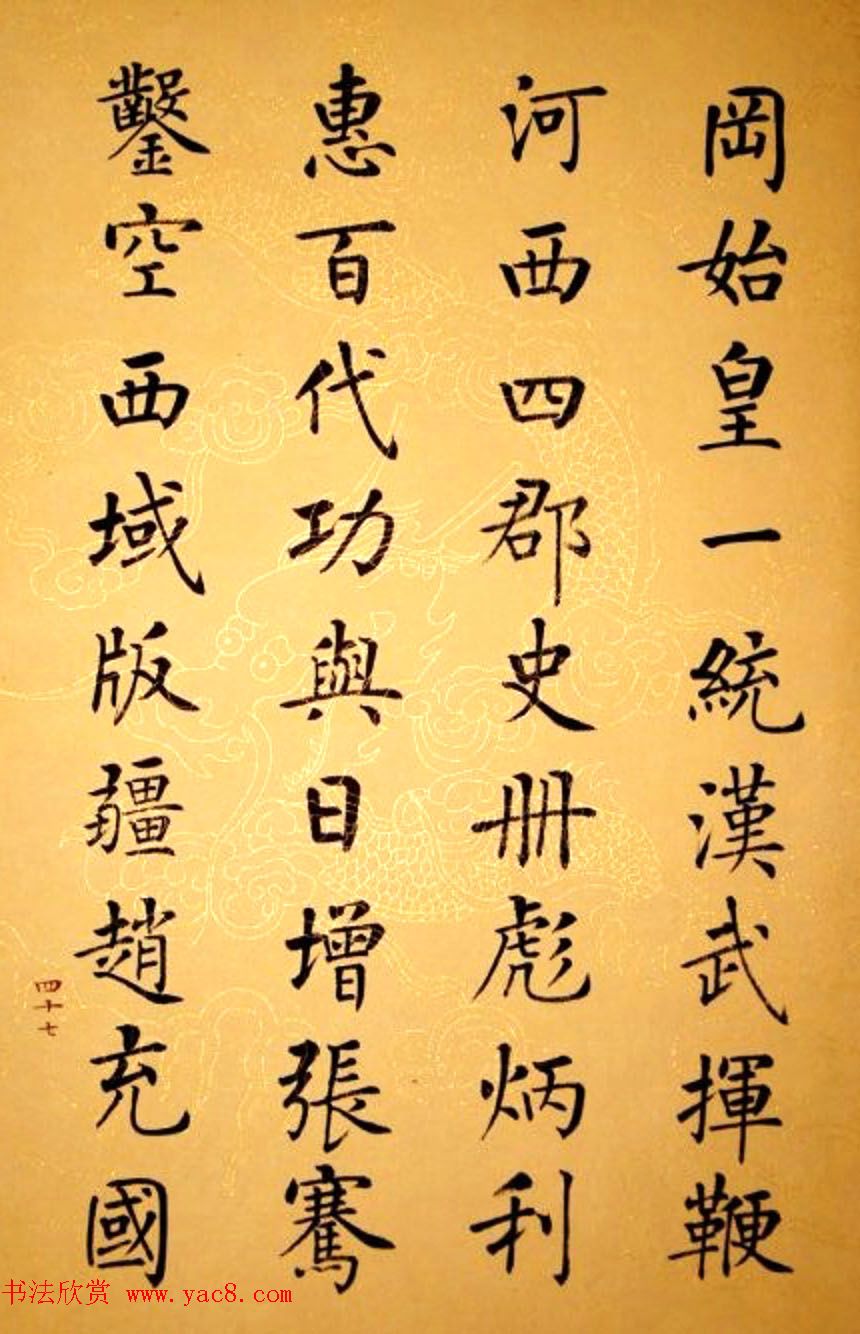 岡始皇一統漢武揮鞭
河西四郡史册彪炳利
惠百代功與日增張騫
鑿空西域版疆趙充國
四十七
书法欣赏 www.yac8.com